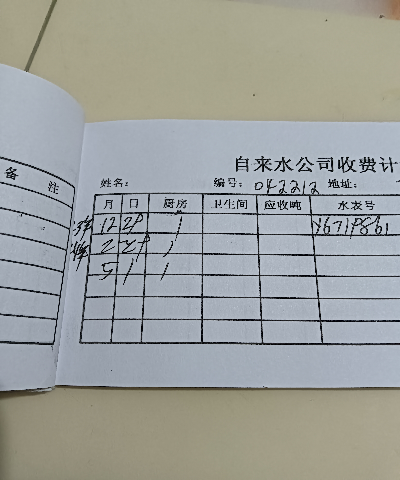 备 注
自来水公司收费计
姓名： 编号： 042212 地址：
月 日 厨房 卫生间 应收吨 水表号
12 1
2 1
5 1 1